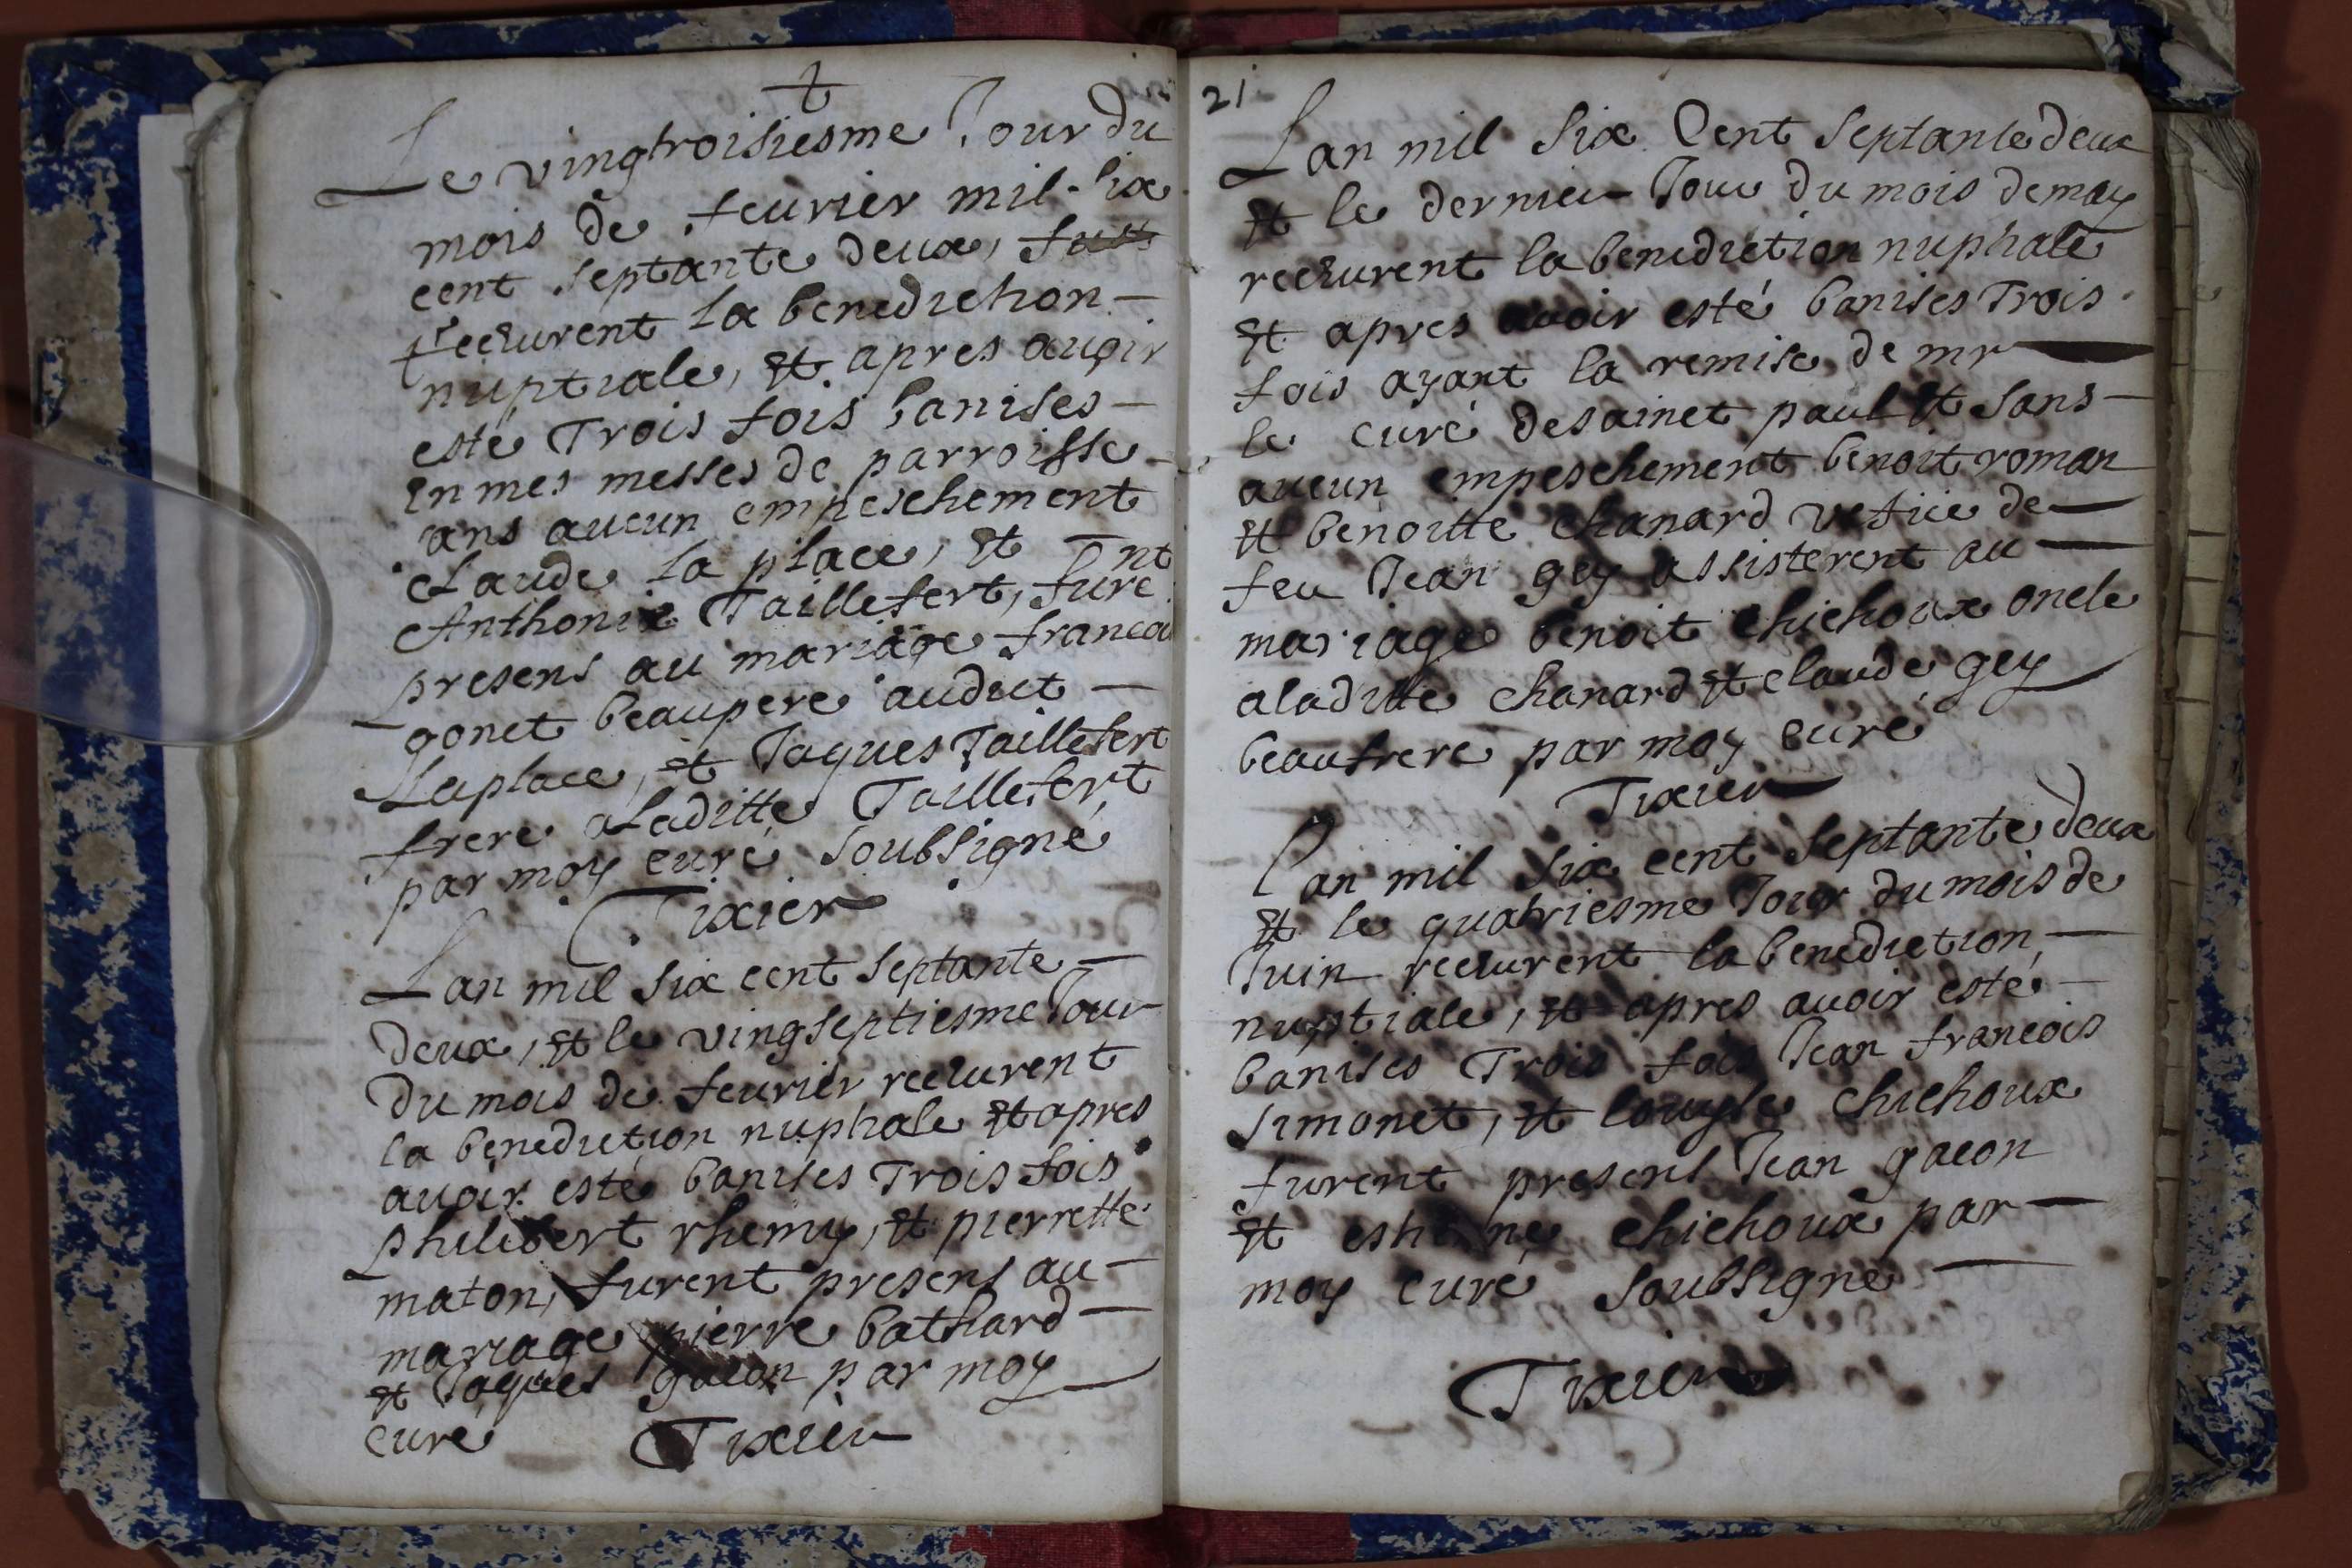 Le vingtroisiesme Jour du
mois de feurier mil six
cent septante deux, furt
receurent la benediction
nuptiale, et apres auoir
esté Trois fois banises
En mes messes de parroisse
sans aucun empeschement
Claude la place, et
Anthonie Taillefert, furent
presens au mariage francoi
gonet beaupere audict
Laplace, et Jaques Taillefert
frere aladitte Taillefert
par moy curé soubsigné
Tixier
Lan mil six cent septante
deux, et le vingseptiesme Jour
du mois de feurier receurent
la benediction nuptiale et apres
auoir esté banises Trois fois
philibert rhemy, et pierrette
maton, furent presens au
mariage pierre bathard
et Jaques gacon par moy
curé Tixier
21
Lan mil six Cent septante deux
et le dernier Jour du mois de may
receurent la benediction nuptiale
et apres auoir esté banises Trois
fois ayant la remise de mr
le curé de sainct paul et sans
aucun empeschement benoit roman
et benoitte chanard vefue de
feu Jean gey assisterent au
mariage benoit chichoux oncle
aladitte chanard et claude gey
beaufrere par moy curé
Tixier
Lan mil six cent septante deux
et le quatriesme Jour du mois de
Juin receurent la benediction
nuptiale, et apres auoir esté
banises Trois fois Jean francois
simonet, et louyse chichoux
furent presens Jean gacon
et estienne chichoux par
moy curé soubsigné
Tixier